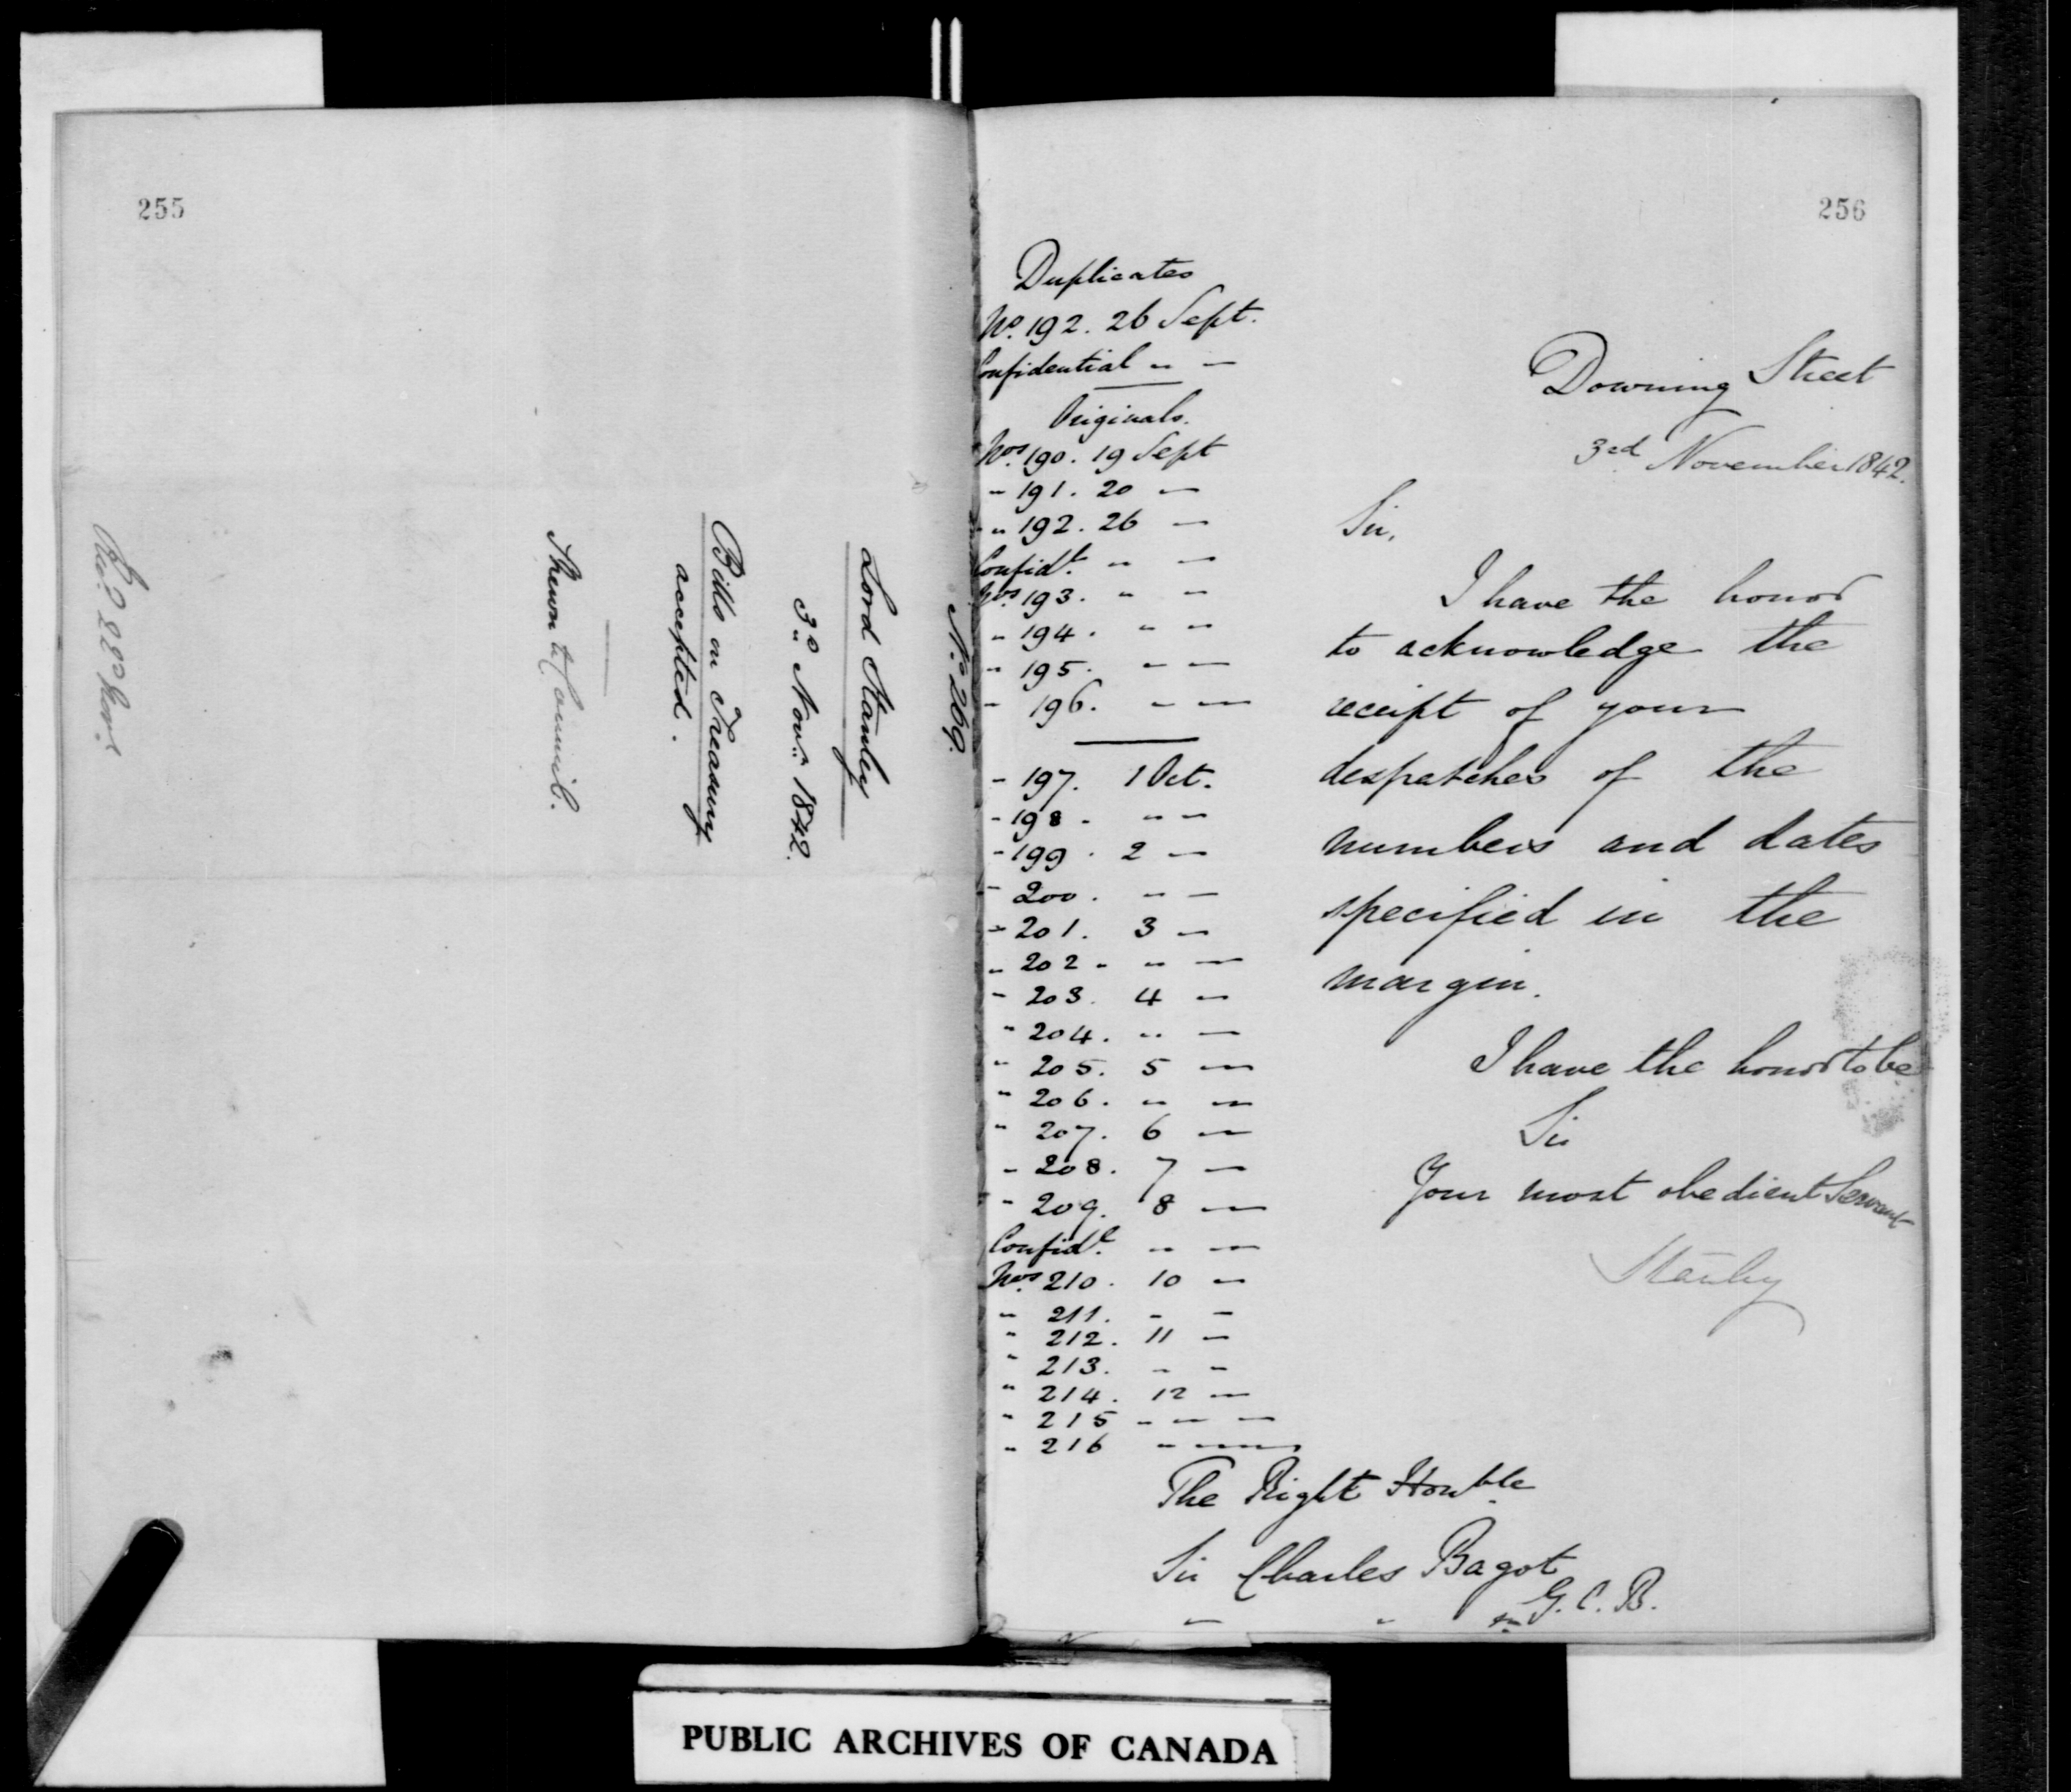 255
No. 269.
Lord Stanley
3d. Nov. 1842.
Bills on Treasury
accepted.
Shewn to Council.
Rec.d 22d Nov.
256
Duplicates
No. 192. 26 Sept.
Confidential " —
Originals.
Nos. 190. 19 Sept
" 191. 20 —
" 192. 26 —
Confidl. " —
Nos. 193. " —
" 194. " —
" 195. " —
" 196. " —
" 197. 1 Oct.
" 198. " —
" 199. 2 —
" 200. " —
" 201. 3 —
" 202. " —
" 203. 4 —
" 204. " —
" 205. 5 —
" 206. " —
" 207. 6 —
" 208. 7 —
" 209. 8 —
Confidl. " —
Nos. 210. 10 —
" 211. " —
" 212. 11 —
" 213. " —
" 214. 12 —
" 215 " — —
" 216 " —
Downing Street
3rd November 1842.
Sir,
I have the honor
to acknowledge the
receipt of your
despatches of the
numbers and dates
specified in the
margin.
I have the honor to be
Sir
Your most obedient Servant
Stanley
The Right Honble
Sir Charles Bagot
G.C.B.
PUBLIC ARCHIVES OF CANADA